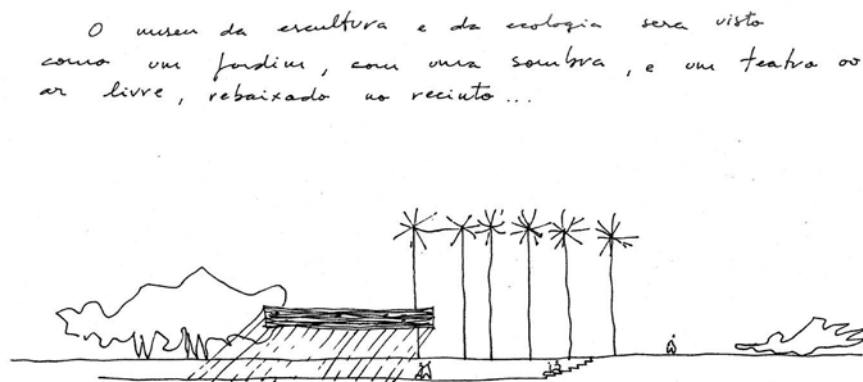 O museu da escultura e da ecologia sera visto
como um jardim, com uma sombra, e um teatro ao
ar livre, rebaixado no recinto...